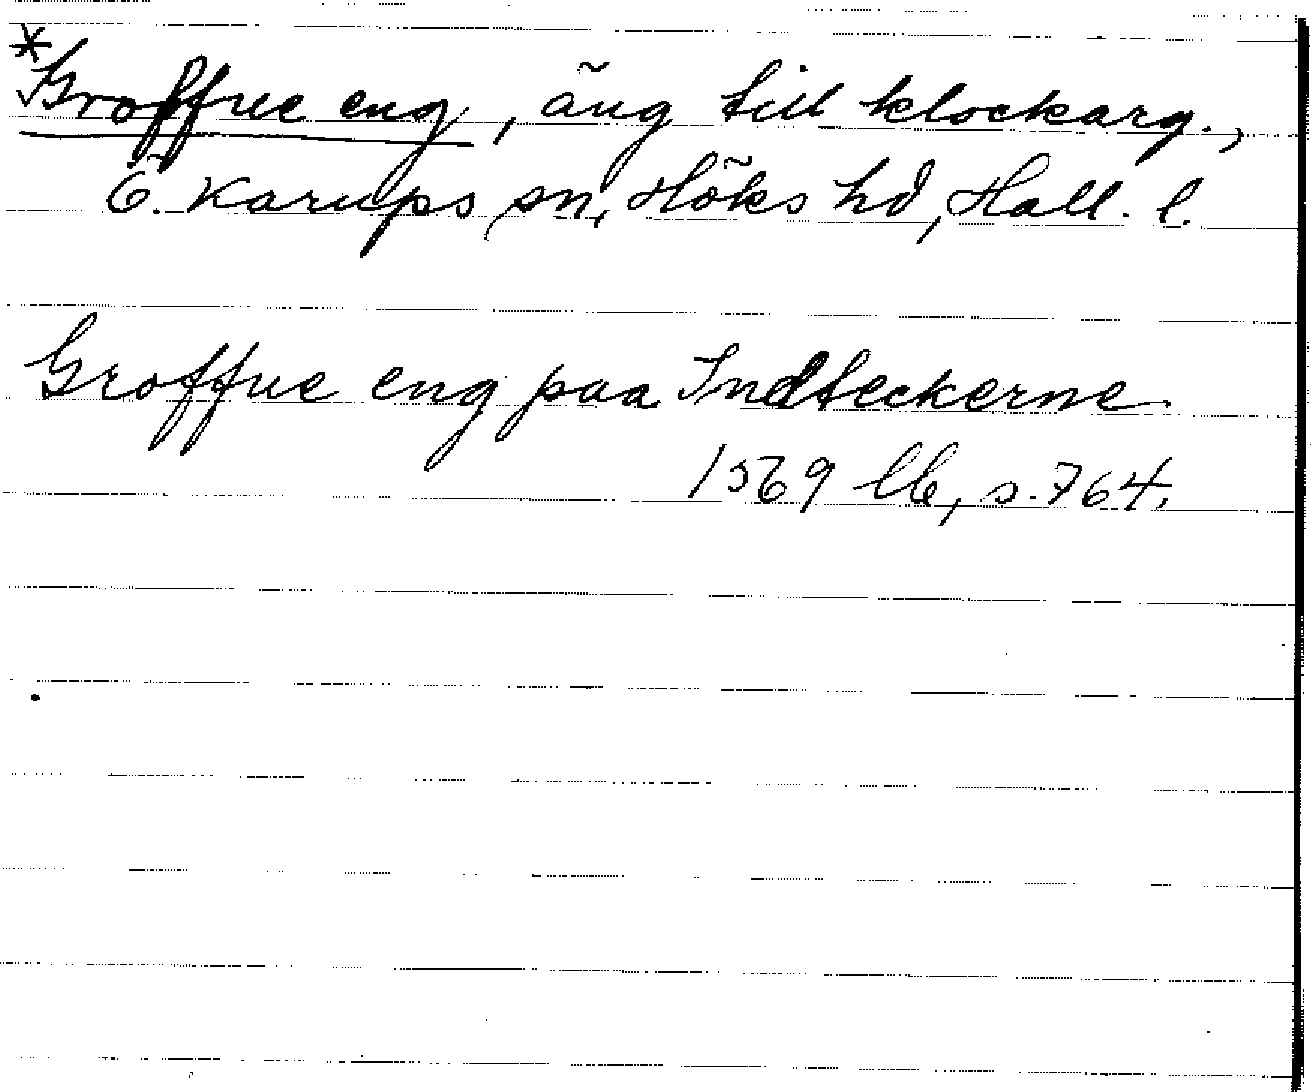 *Groffue eng, äng till klockarg.,
Ö. Karups sn, Höks hd, Hall. l.
Groffue eng paa Indteckerne
1569 lb, s. 764.